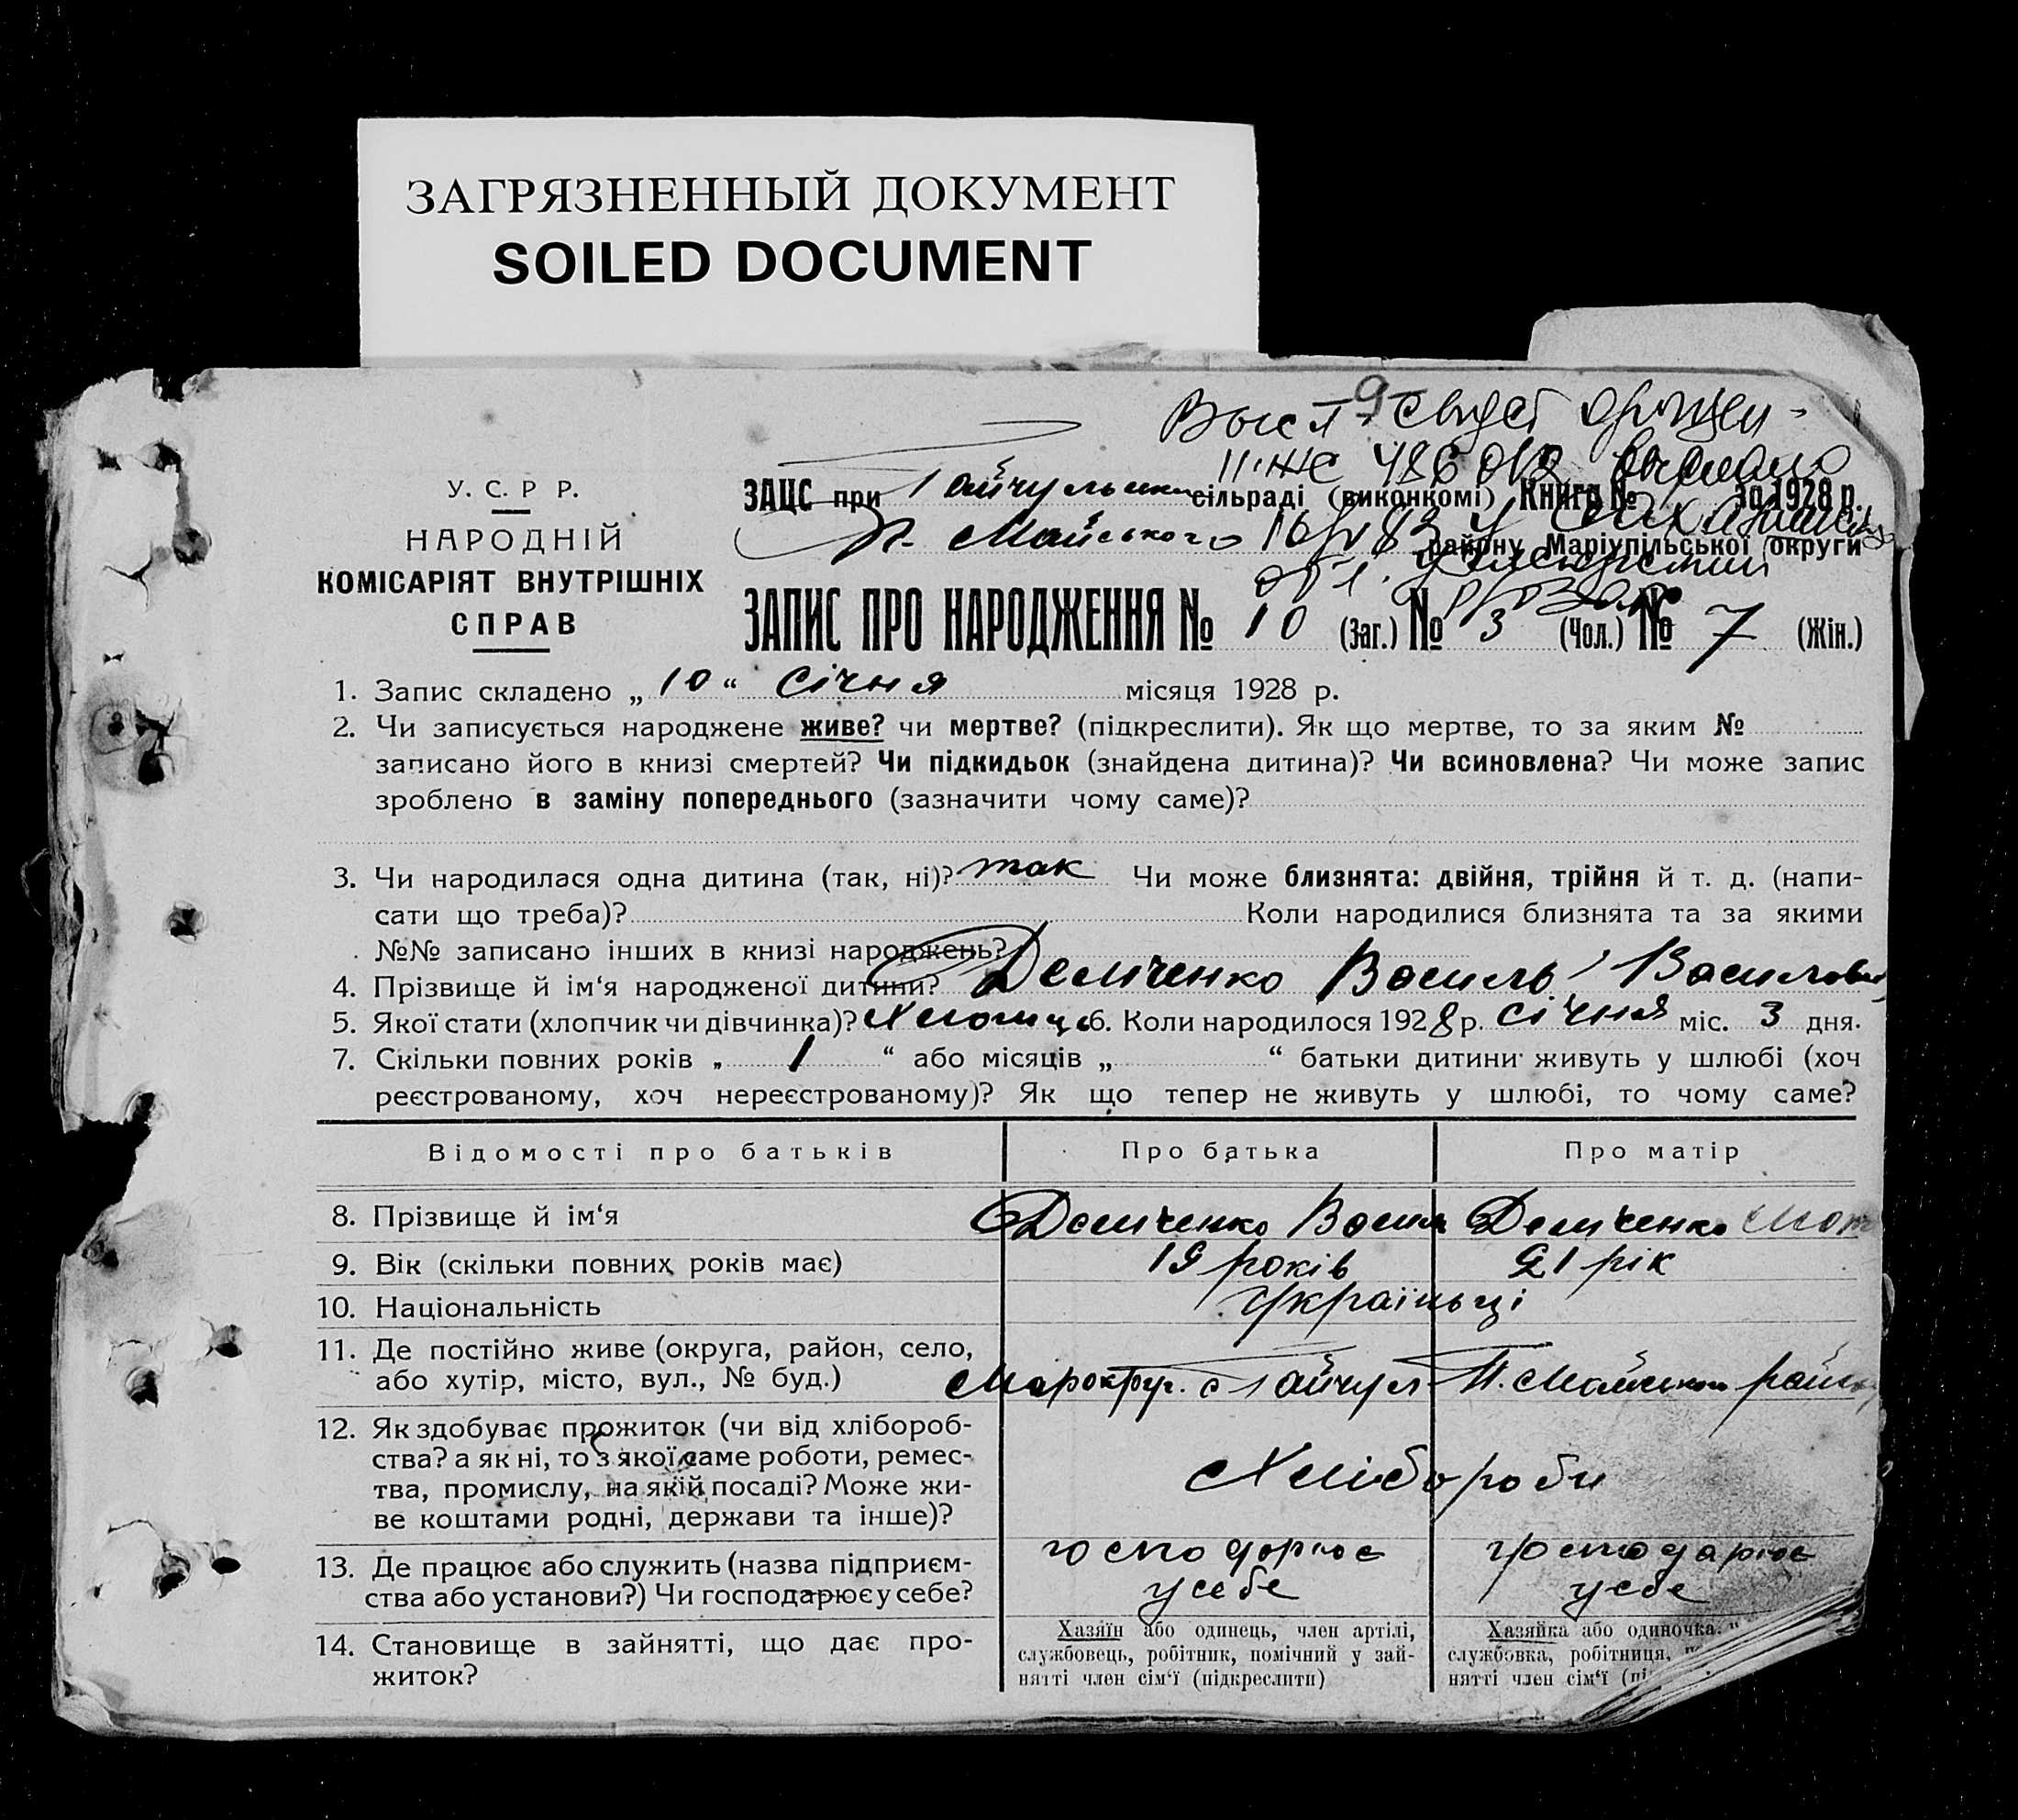 ЗАГРЯЗНЕННЫЙ ДОКУМЕНТ
SOILED DOCUMENT
9
Высл свидет о рожден-
У. С. Р Р.
НАРОДНІЙ
КОМІСАРІЯТ ВНУТРІШНІХ
СПРАВ
ЗАЦС при Гайчульський сільраді (виконкомі) Книга № за 1928 р.
П. Майського району Маріупільської округи
ЗАПИС ПРО НАРОДЖЕННЯ № 10 (Заг.) № 3 (Чол.) № 7 (Жін.)
1. Запис складено „ 10 “ Січня місяця 1928 р.
2. Чи записується народжене живе? чи мертве? (підкреслити). Як що мертве, то за яким №
записано його в книзі смертей? Чи підкидьок (знайдена дитина)? Чи всиновлена? Чи може запис
зроблено в заміну попереднього (зазначити чому саме)?
3. Чи народилася одна дитина (так, ні)? так Чи може близнята: двійня, трійня й т. д. (напи-
сати що треба)? Коли народилися близнята та за якими
№№ записано інших в книзі народжень?
4. Прізвище й ім‘я народженої дитини? Демченко Василь Василович
5. Якої стати (хлопчик чи дівчинка)? Хлопць 6. Коли народилося 1928 р. Січня міс. 3 дня.
7. Скільки повних років „ 1 “ або місяців „ “ батьки дитини живуть у шлюбі (хоч
реєстрованому, хоч нереєстрованому)? Як що тепер не живуть у шлюбі, то чому саме?
Відомості про батьків Про батька Про матір
8. Прізвище й ім‘я Демченко Васил Демченко
9. Вік (скільки повних років має) 19 років 21 рік
10. Національність Україньці
11. Де постійно живе (округа, район, село,
або хутір, місто, вул., № буд.) Марокруг. с Гайчул П. Майського район
12. Як здобуває прожиток (чи від хлібороб-
ства? а як ні, то з якої саме роботи, ремес-
тва, промислу, на якій посаді? Може жи-
ве коштами родні, держави та інше)?
Хлібороби
13. Де працює або служить (назва підприєм-
ства або установи?) Чи господарює у себе?
господорює у себе
господарює у себе
14. Становище в зайнятті, що дає про-
житок?
Хазяїн або одинець, член артілі,
службовець, робітник, помічний у зай-
нятті член сім‘ї (підкреслити)
Хазяйка або одиночка,
службовка, робітниця,
нятті член сім‘ї